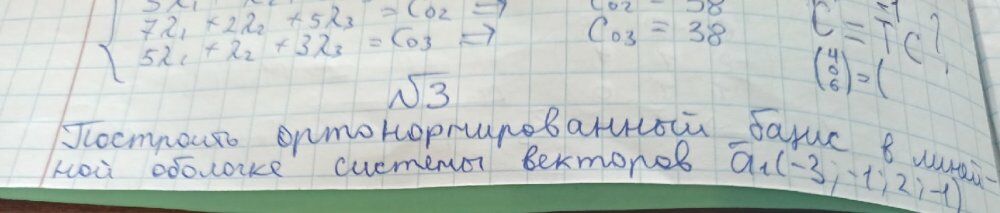 7λ₁ + 2λ₂ + 5λ₃ = C₀₂ ⇒
5λ₁ + λ₂ + 3λ₃ = C₀₃ ⇒ C₀₃ = 38
C = T⁻¹C ?
(4 0 6) = (
√3
Построить ортонормированный базис в линей-
ной оболочке системы векторов a₁(-3; -1; 2; -1)